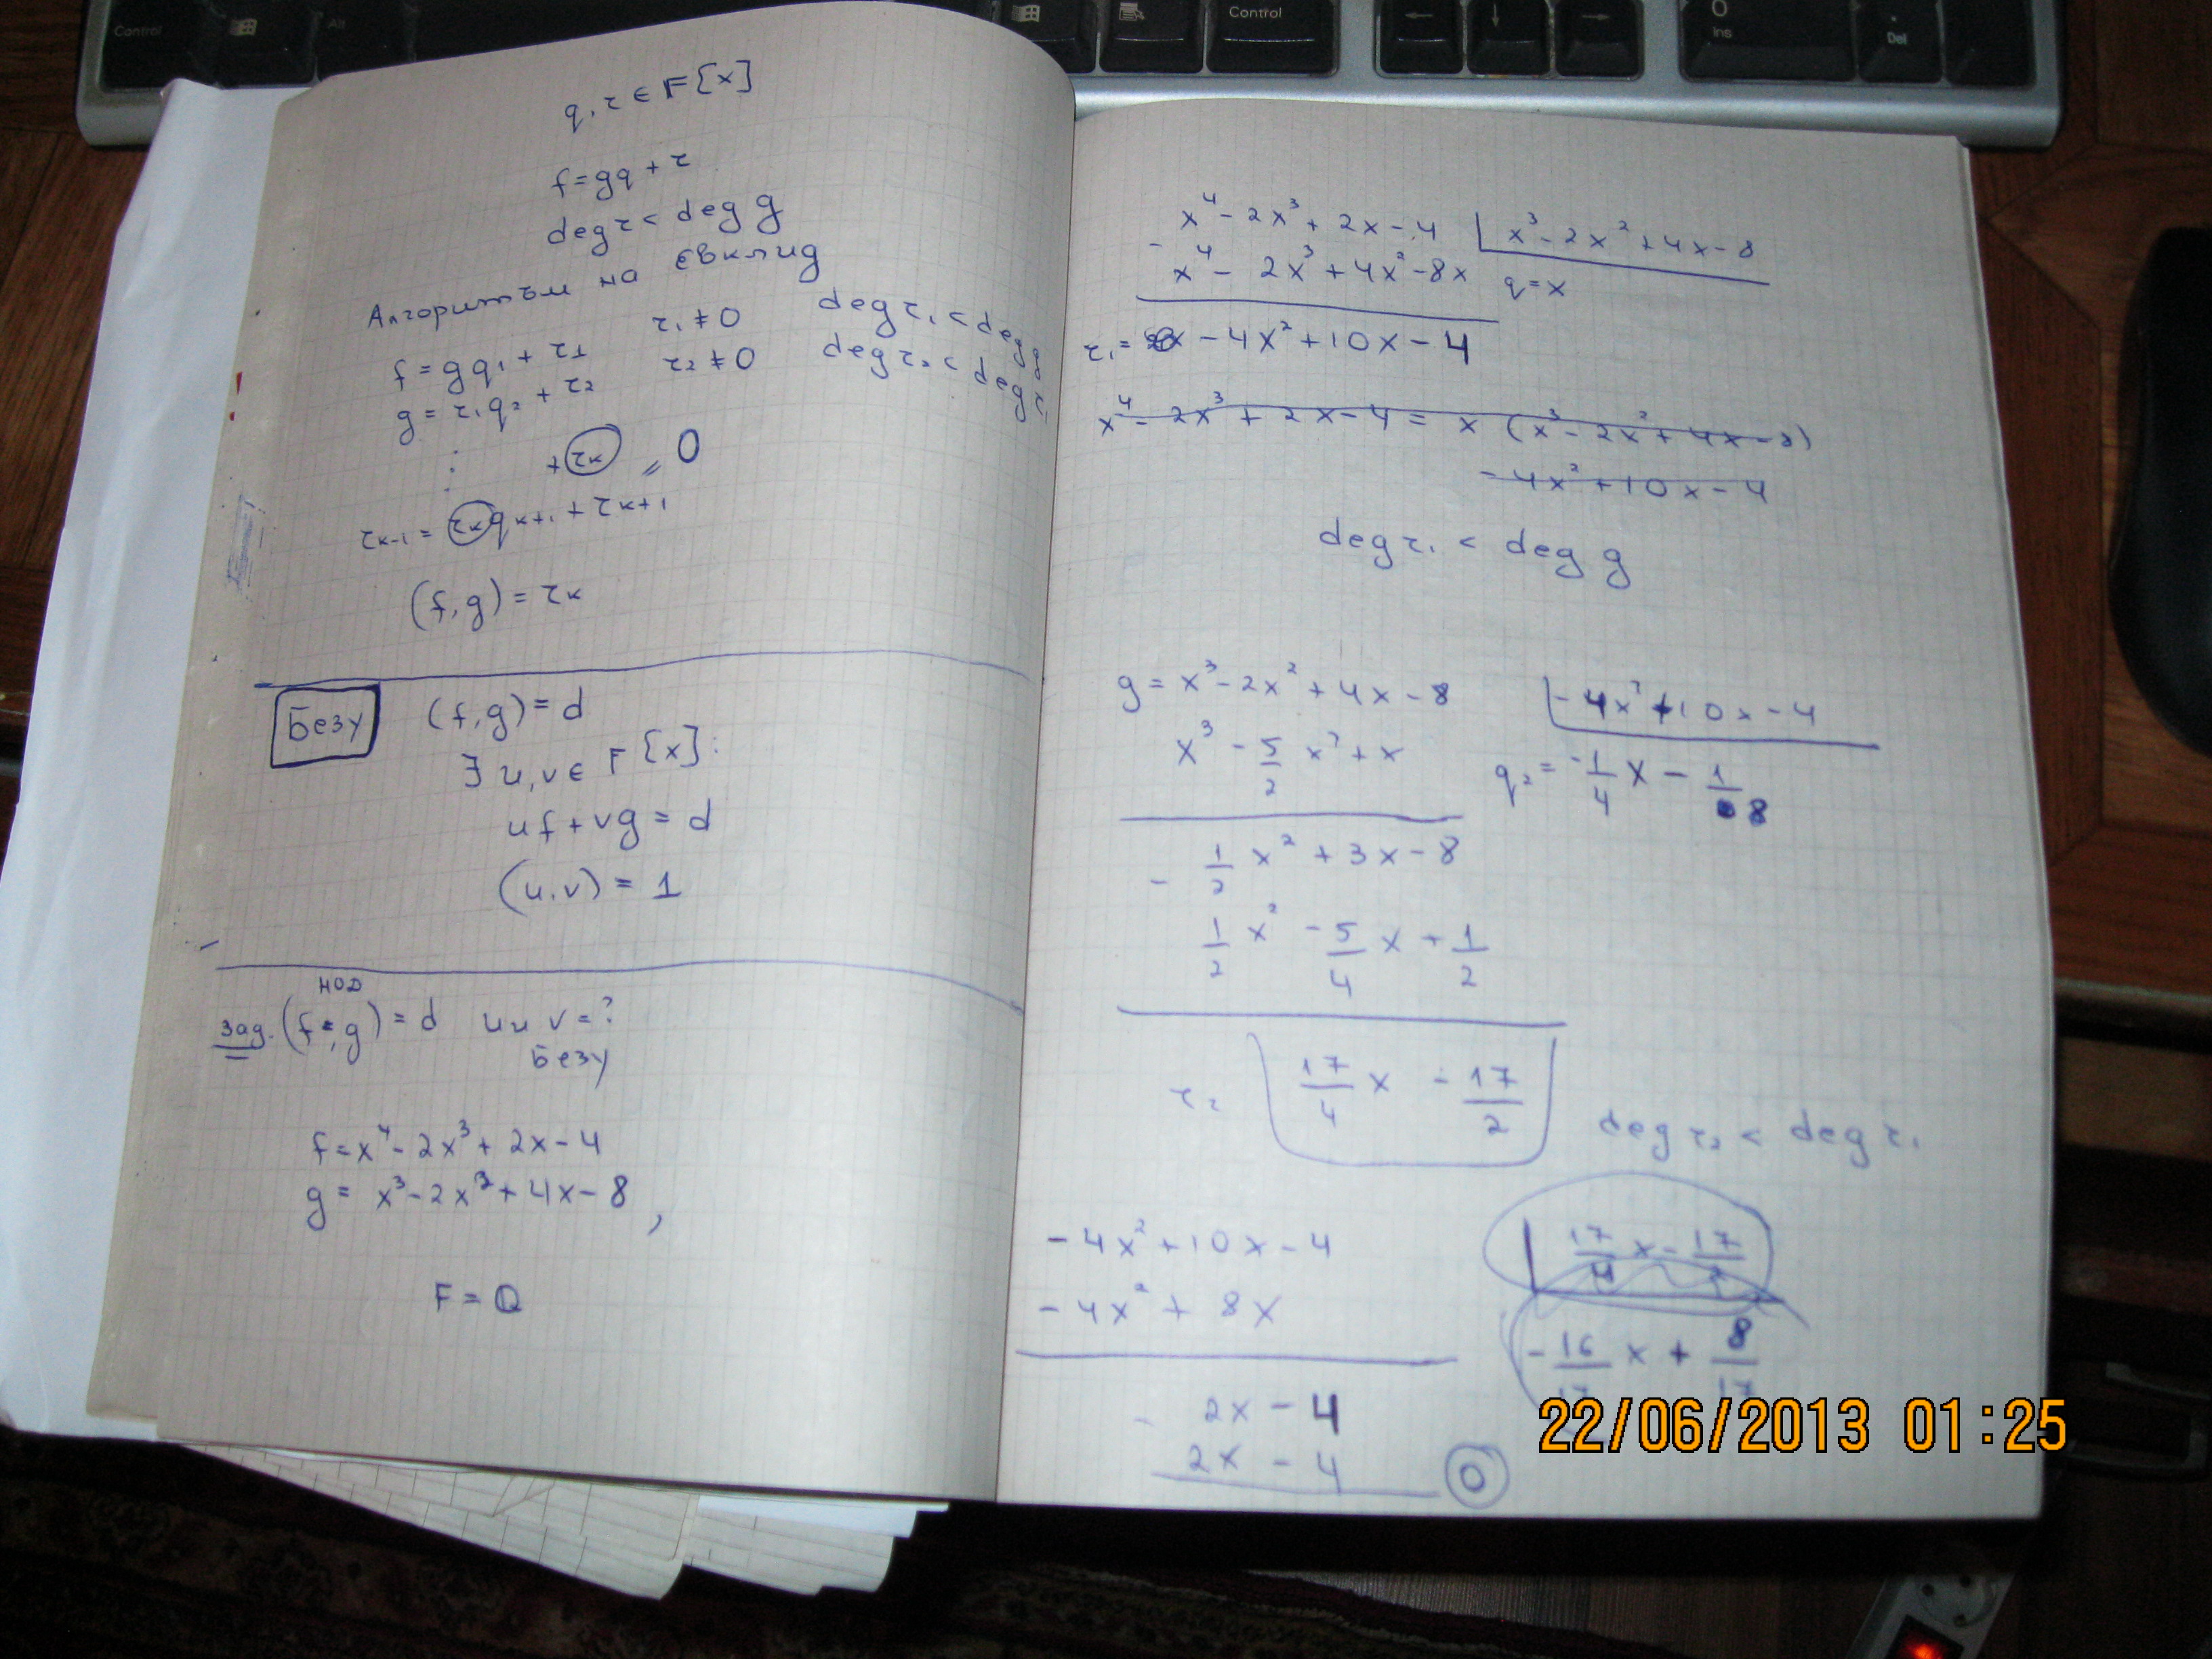 Control
Alt
Control
0
Ins
Del
q, r ∈ F[x]
f = gq + r
deg r < deg g
Алгоритъм на Евклид
f = gq₁ + r₁ r₁ ≠ 0 deg r₁ < deg g
g = r₁q₂ + r₂ r₂ ≠ 0 deg r₂ < deg r₁
⋮ + rк = 0
rк-1 = rкqк+1 + rк+1
(f, g) = rк
Безу (f, g) = d
∃ u, v ∈ F[x]:
uf + vg = d
(u, v) = 1
НОД
зад. (f, g) = d u и v = ?
Безу
f = x⁴ - 2x³ + 2x - 4
g = x³ - 2x² + 4x - 8,
F = Q
x⁴ - 2x³ + 2x - 4 | x³ - 2x² + 4x - 8
- x⁴ - 2x³ + 4x² - 8x q = x
r₁ = - 4x² + 10x - 4
x⁴ - 2x³ + 2x - 4 = x (x³ - 2x² + 4x - 8)
- 4x² + 10x - 4
deg r₁ < deg g
g = x³ - 2x² + 4x - 8 | - 4x² + 10x - 4
x³ - 5/2 x² + x q₂ = -1/4 x - 1/8
- 1/2 x² + 3x - 8
1/2 x² - 5/4 x + 1/2
r₂ 17/4 x - 17/2 deg r₂ < deg r₁
- 4x² + 10x - 4 | 17/4 x - 17/2
- 4x² + 8x - 16/17 x + 8/17
- 2x - 4
2x - 4
0
22/06/2013 01:25